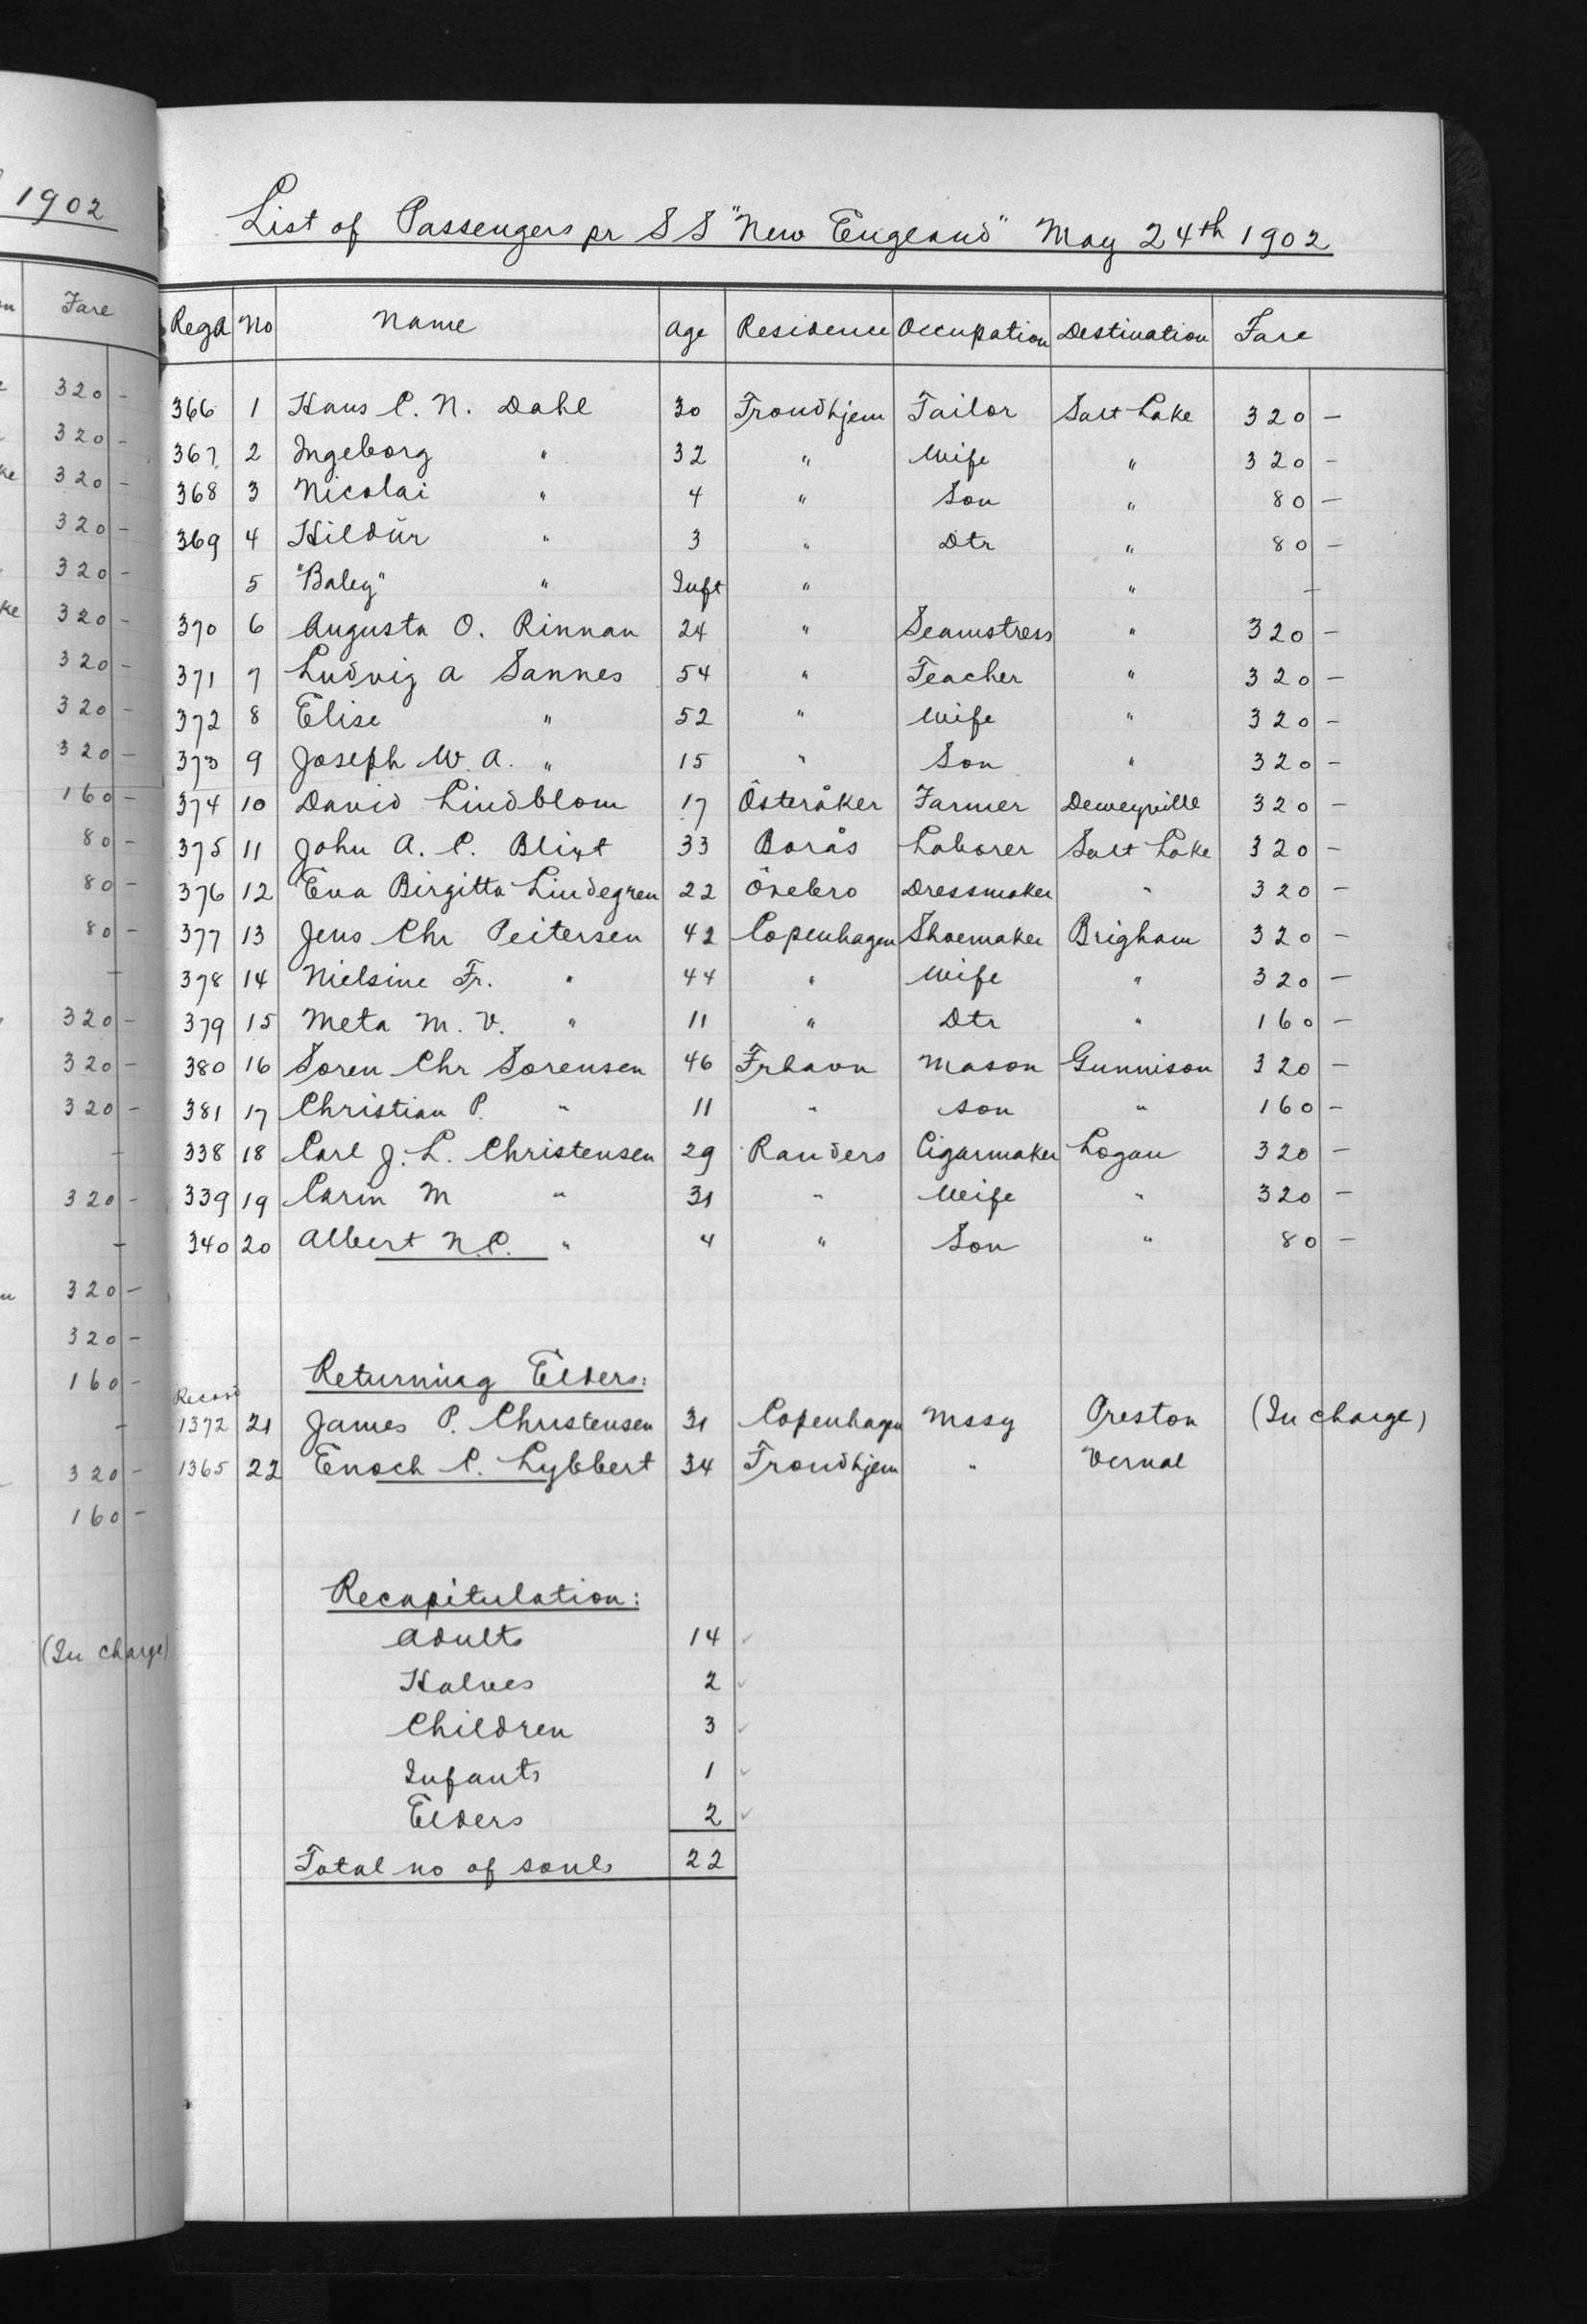 1902
Fare
320 -
320 -
320 -
320 -
320 -
320 -
320 -
320 -
320 -
160 -
80 -
80 -
80 -
-
320 -
320 -
320 -
-
320 -
-
320 -
320 -
160 -
-
320 -
160 -
(In charge)
List of Passengers pr S S "New England" May 24th 1902
Regd No Name Age Residence Occupation Destination Fare
366 1 Hans C. N. Dahl 30 Trondhjem Tailor Salt Lake 320 -
367 2 Ingeborg " 32 " Wife " 320 -
368 3 Nicolai " 4 " Son " 80 -
369 4 Hildur " 3 " Dtr " 80 -
5 "Baby" " Inft " " -
370 6 Augusta O. Rinnan 24 " Seamstress " 320 -
371 7 Ludvig A Sannes 54 " Teacher " 320 -
372 8 Elise " 52 " Wife " 320 -
373 9 Joseph W. A. " 15 " Son " 320 -
374 10 David Lindblom 17 Österåker Farmer Deweyville 320 -
375 11 John A. C. Blixt 33 Borås Laborer Salt Lake 320 -
376 12 Eva Birgitta Lindegren 22 Örebro Dressmaker " 320 -
377 13 Jens Chr Peitersen 42 Copenhagen Shoemaker Brigham 320 -
378 14 Nielsine Fr. " 44 " Wife " 320 -
379 15 Meta M. V. " 11 " Dtr " 160 -
380 16 Soren Chr Sorensen 46 Frhavn Mason Gunnison 320 -
381 17 Christian P. " 11 " Son " 160 -
338 18 Carl J. L. Christensen 29 Randers Cigarmaker Logan 320 -
339 19 Carin M " 31 " Wife " 320 -
340 20 Albert N.C. " 4 " Son " 80 -
Returning Elders:
Record
1372 21 James P. Christensen 31 Copenhagen Mssy Preston (In charge)
1365 22 Enoch C. Lybbert 34 Trondhjem " Vernal
Recapitulation:
Adults 14 ✓
Halves 2 ✓
Children 3 ✓
Infants 1 ✓
Elders 2 ✓
Total no of souls 22